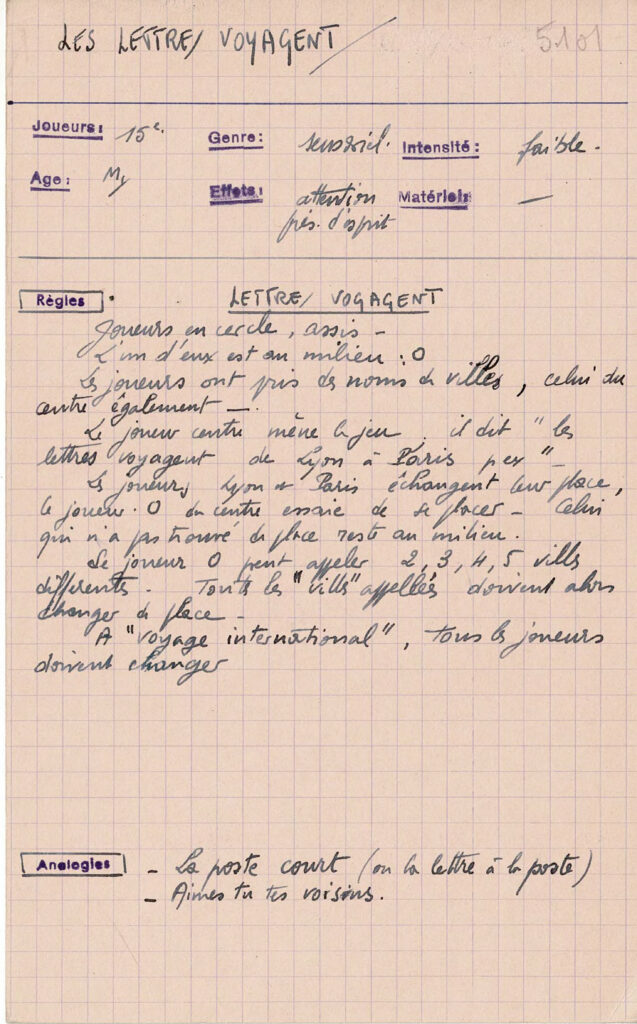 LES LETTRES VOYAGENT
5101
Joueurs: 15e. Genre: sensoriel. Intensité: faible.
Age: My Effets: attention Matériel: —
prés. d'esprit
Règles
LETTRES VOYAGENT
Joueurs en cercle, assis -
L'un d'eux est au milieu : O
Les joueurs ont pris des noms de villes, celui du
centre également —.
Le joueur centre mène le jeu, il dit "les
lettres voyagent de Lyon à Paris p ex" -
Les joueurs Lyon et Paris échangent leur place,
le joueur O du centre essaie de se placer - Celui
qui n'a pas trouvé de place reste au milieu.
Le joueur O peut appeler 2, 3, 4, 5 villes
différentes. Toutes les "villes" appellées doivent alors
changer de place -
A "voyage international", tous les joueurs
doivent changer
Analogies
- La poste court (ou la lettre à la poste)
- Aimes tu tes voisins.